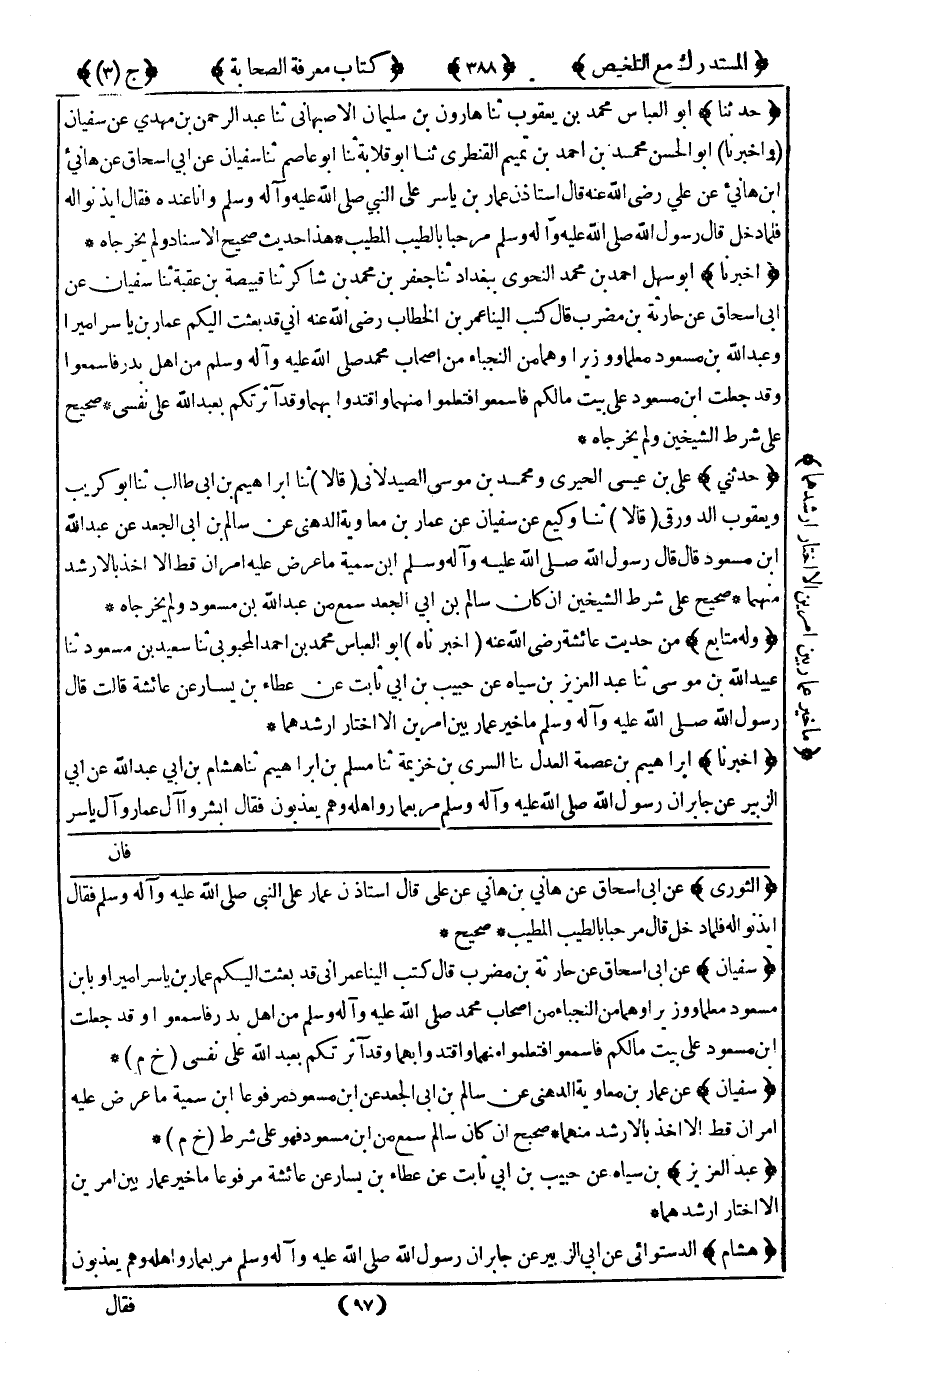 ﴿ المستدرك مع التلخيص ﴾ ﴿ ٣٨٨ ﴾ ﴿ كتاب معرفة الصحابة ﴾ ﴿ ج (٣) ﴾
﴿ حدثنا ﴾ ابو العباس محمد بن يعقوب ثنا هارون بن سليمان الاصبهانى ثنا عبد الرحمن بن مهدي عن سفيان
(واخبرنا) ابو الحسن محمد بن احمد بن تميم القنطرى ثنا ابو قلابة ثنا ابو عاصم ثنا سفيان عن ابي اسحاق عن هانئ
ابن هانئ عن علي رضى الله عنه قال استاذن عمار بن ياسر على النبي صلى الله عليه وآله وسلم وانا عنده فقال ايذنواله
فلما دخل قال رسول الله صلى الله عليه وآله وسلم مرحبا بالطيب المطيب * هذا حديث صحيح الاسناد ولم يخرجاه *
﴿ اخبرنا ﴾ ابو سهل احمد بن محمد النحوى ببغداد ثنا جعفر بن محمد بن شاكر ثنا قبيصة بن عقبة ثنا سفيان عن
ابى اسحاق عن حارثة بن مضرب قال كتب الينا عمر بن الخطاب رضى الله عنه اني قد بعثت اليكم عمار بن ياسر اميرا
وعبد الله بن مسعود معلما ووزيرا وهما من النجباء من اصحاب محمد صلى الله عليه وآله وسلم من اهل بدر فاسمعوا
وقد جعلت ابن مسعود على بيت مالكم فاسمعوا فتعلموا منهما واقتدوا بهما وقد آثرتكم بعبد الله على نفسى * صحيح
على شرط الشيخين ولم يخرجاه *
﴿ حدثني ﴾ على بن عيسى الحيرى ومحمد بن موسى الصيدلانى ( قالا ) ثنا ابراهيم بن ابى طالب ثنا ابو كريب
ويعقوب الدورقى ( قالا ) ثنا وكيع عن سفيان عن عمار بن معاوية الدهنى عن سالم بن ابى الجعد عن عبد الله
ابن مسعود قال قال رسول الله صلى الله عليه وآله وسلم ابن سمية ما عرض عليه امران قط الا اخذ بالارشد
منهما * صحيح على شرط الشيخين ان كان سالم بن ابي الجعد سمع من عبد الله بن مسعود ولم يخرجاه *
﴿ وله متابع ﴾ من حديث عائشة رضى الله عنه ( اخبرناه ) ابو العباس محمد بن احمد المحبوبى ثنا سعيد بن مسعود ثنا
عبيد الله بن موسى ثنا عبد العزيز بن سياه عن حبيب بن ابي ثابت عن عطاء بن يسار عن عائشة قالت قال
رسول الله صلى الله عليه وآله وسلم ما خير عمار بين امرين الا اختار ارشدهما *
﴿ اخبرنا ﴾ ابراهيم بن عصمة العدل ثنا السرى بن خزيمة ثنا مسلم بن ابراهيم ثنا هشام بن ابي عبد الله عن ابي
الزبير عن جابر ان رسول الله صلى الله عليه وآله وسلم مر بعمار واهله وهم يعذبون فقال ابشروا آل عمار وآل ياسر
فان
﴿ ما خير عمار بين امرين الا اختار ارشدهما ﴾
﴿ الثورى ﴾ عن ابى اسحاق عن هاني بن هاني عن على قال استاذن عمار على النبي صلى الله عليه وآله وسلم فقال
ايذنواله فلما دخل قال مرحبا بالطيب المطيب * صحيح *
﴿ سفيان ﴾ عن ابى اسحاق عن حارثة بن مضرب قال كتب الينا عمر انى قد بعثت اليكم عمار بن ياسر اميرا وبابن
مسعود معلما ووزيرا وهما من النجباء من اصحاب محمد صلى الله عليه وآله وسلم من اهل بدر فاسمعوا وقد جعلت
ابن مسعود على بيت مالكم فاسمعوا فتعلموا منهما واقتدوا بهما وقد آثرتكم بعبد الله على نفسى ( خ م ) *
﴿ سفيان ﴾ عن عمار بن معاوية الدهنى عن سالم بن ابى الجعد عن ابن مسعود مرفوعا ابن سمية ما عرض عليه
امران قط الا اخذ بالارشد منهما * صحيح ان كان سالم سمع من ابن مسعود فهو على شرط ( خ م ) *
﴿ عبد العزيز ﴾ بن سياه عن حبيب بن ابي ثابت عن عطاء بن يسار عن عائشة مرفوعا ما خير عمار بين امرين
الا اختار ارشدهما *
﴿ هشام ﴾ الدستوائى عن ابي الزبير عن جابر ان رسول الله صلى الله عليه وآله وسلم مر بعمار واهله وهم يعذبون
( ٩٧ ) فقال